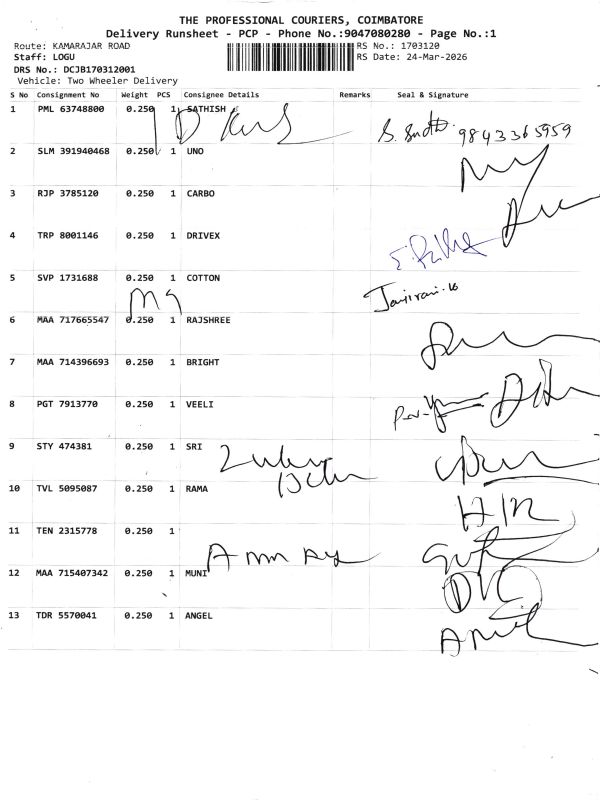 THE PROFESSIONAL COURIERS, COIMBATORE
Delivery Runsheet - PCP - Phone No.:9047080280 - Page No.:1
Route: KAMARAJAR ROAD RS No.: 1703120
Staff: LOGU RS Date: 24-Mar-2026
DRS No.: DCJB170312001
Vehicle: Two Wheeler Delivery
S No Consignment No Weight PCS Consignee Details Remarks Seal & Signature
1 PML 63748800 0.250 1 SATHISH
9843365959
2 SLM 391940468 0.250 1 UNO
3 RJP 3785120 0.250 1 CARBO
4 TRP 8001146 0.250 1 DRIVEX
5 SVP 1731688 0.250 1 COTTON
6 MAA 717665547 0.250 1 RAJSHREE
7 MAA 714396693 0.250 1 BRIGHT
8 PGT 7913770 0.250 1 VEELI
9 STY 474381 0.250 1 SRI
10 TVL 5095087 0.250 1 RAMA
11 TEN 2315778 0.250 1
12 MAA 715407342 0.250 1 MUNI
13 TDR 5570041 0.250 1 ANGEL